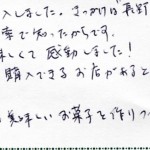 入しました。きっかけは"長野
索で知ったからです。
味しくて感動しました!
購入できるお店があると
美味しいお菓子を作りつ